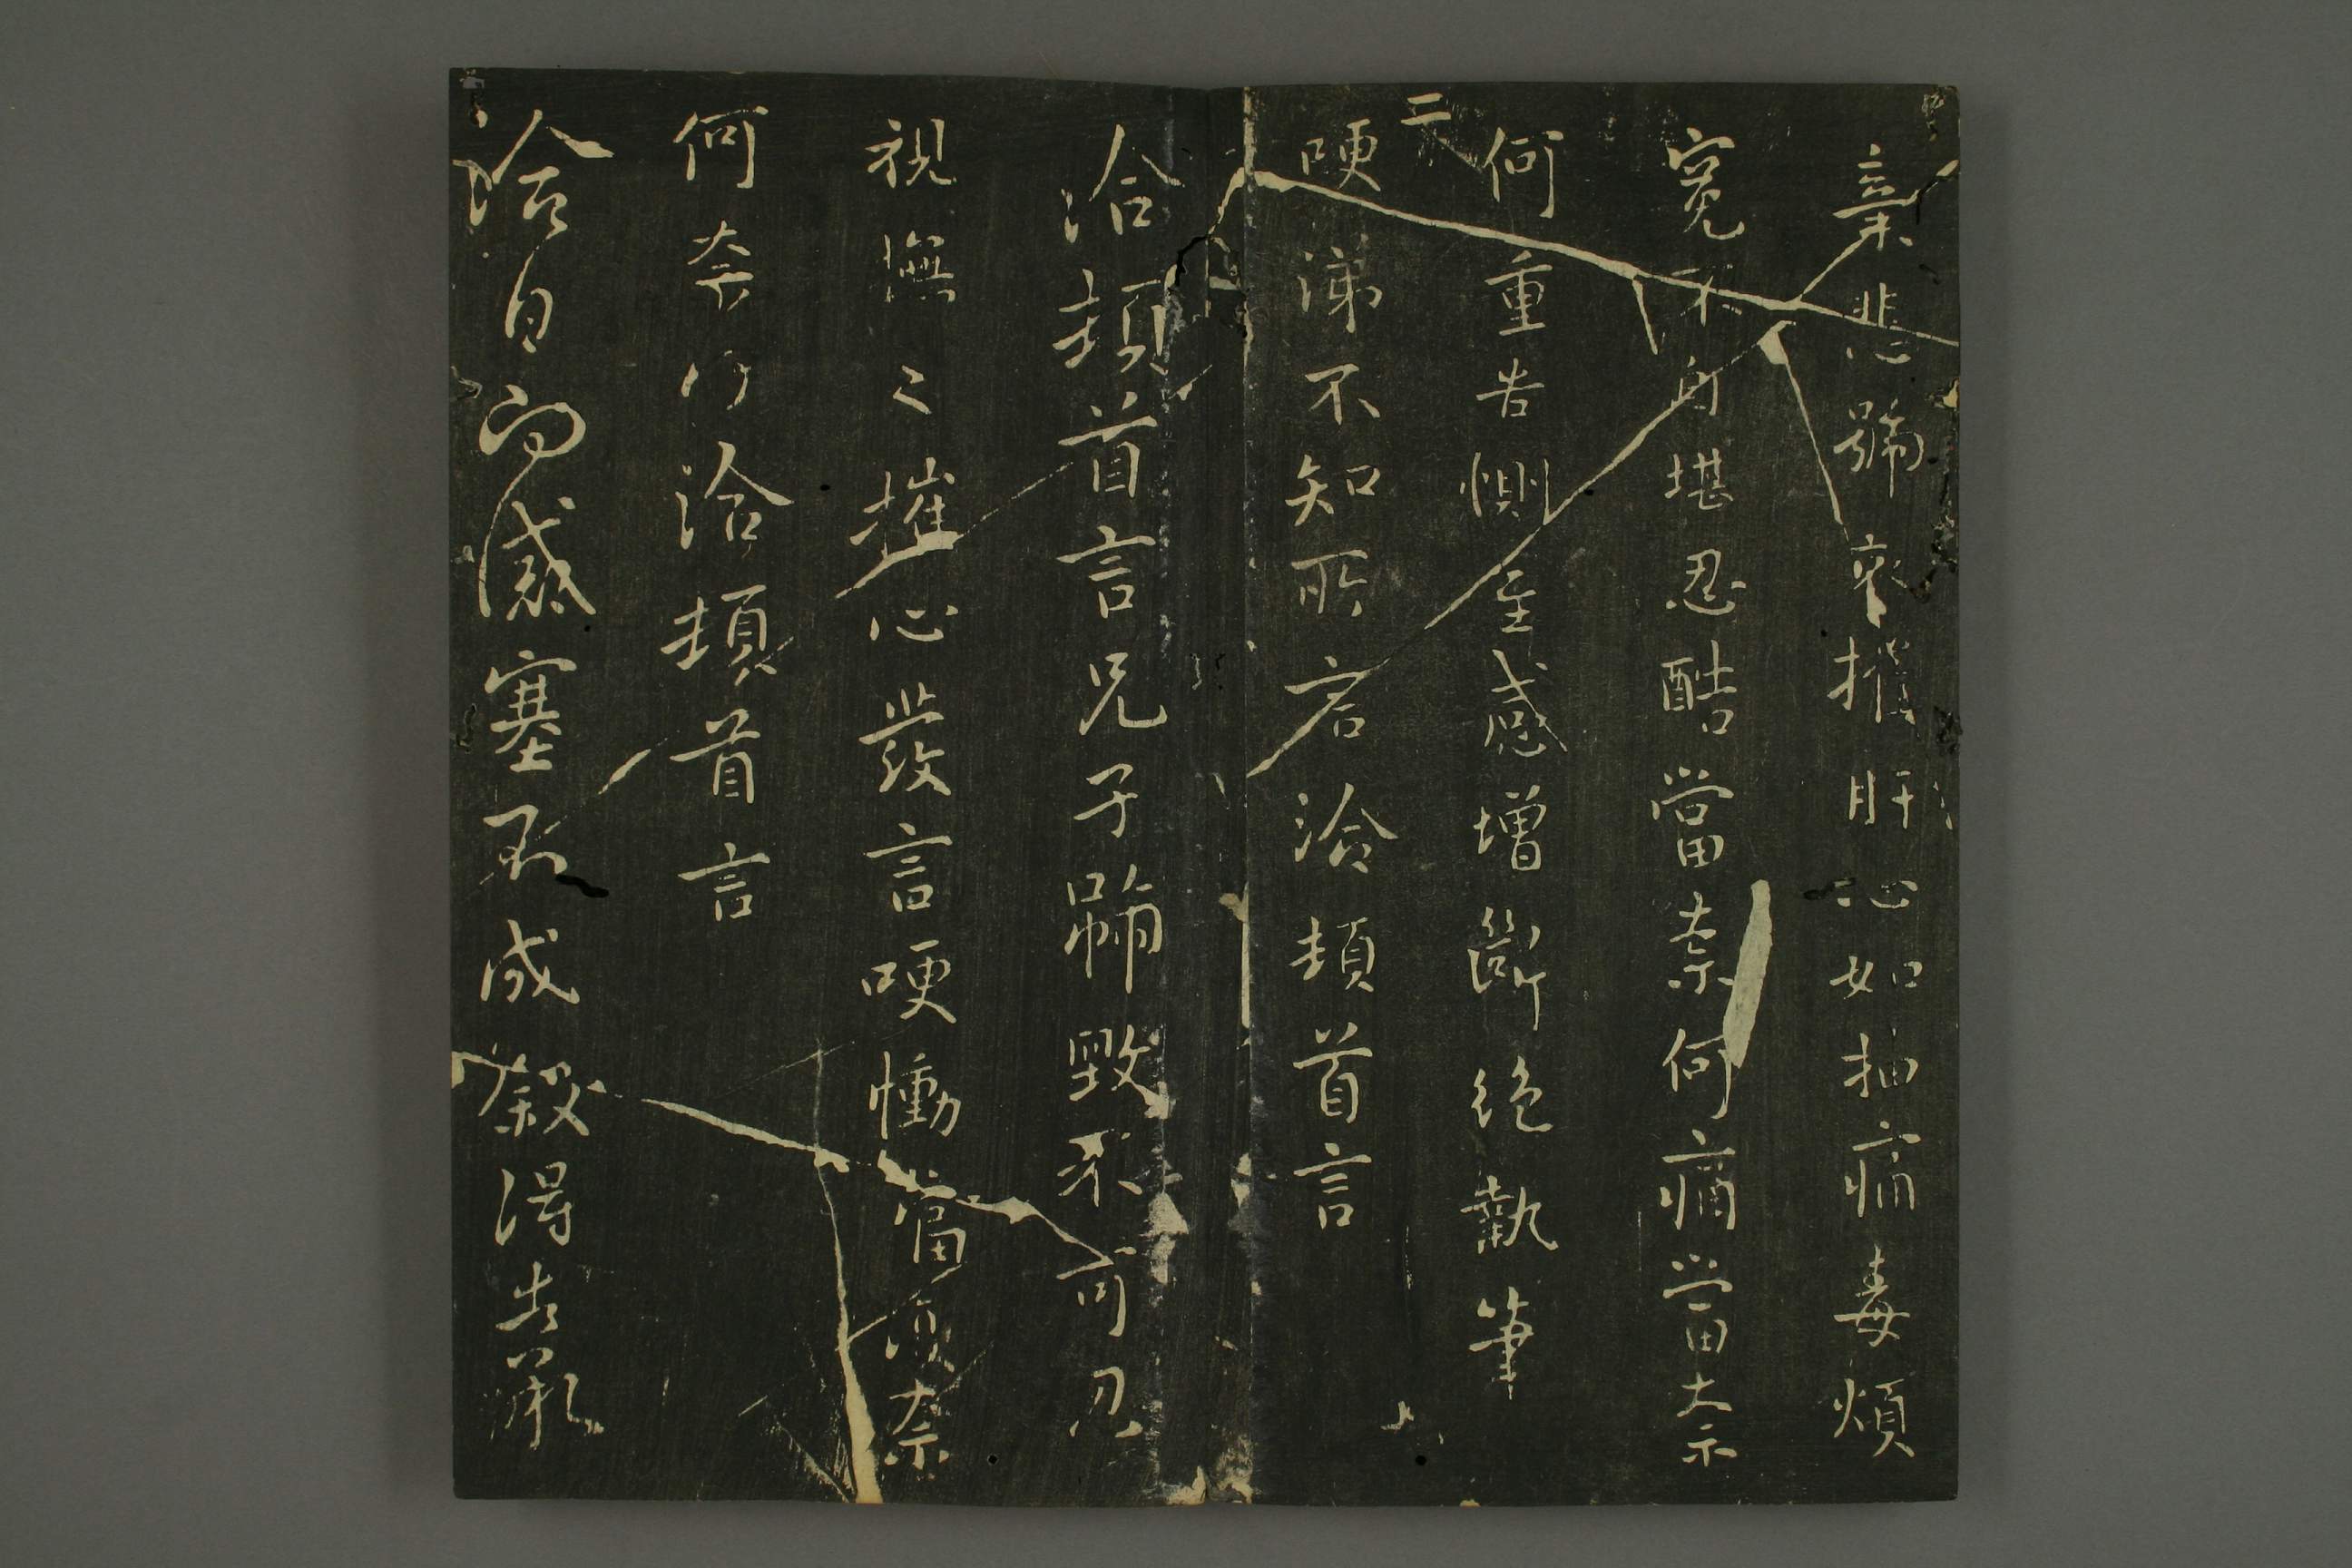 棄悲號哀摧肝心如抽痛毒煩
冤不自堪忍酷當奈何痛當奈
何重告惻至感增斷絕執筆
三
哽涕不知所言洽頓首言
洽頓首言兄子號毀不可忍
視撫之摧心發言哽慟當復奈
何奈何洽頓首言
洽白向感塞不成敘得告承